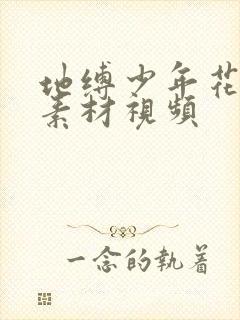 地缚少年花
素材視頻
一念的執着